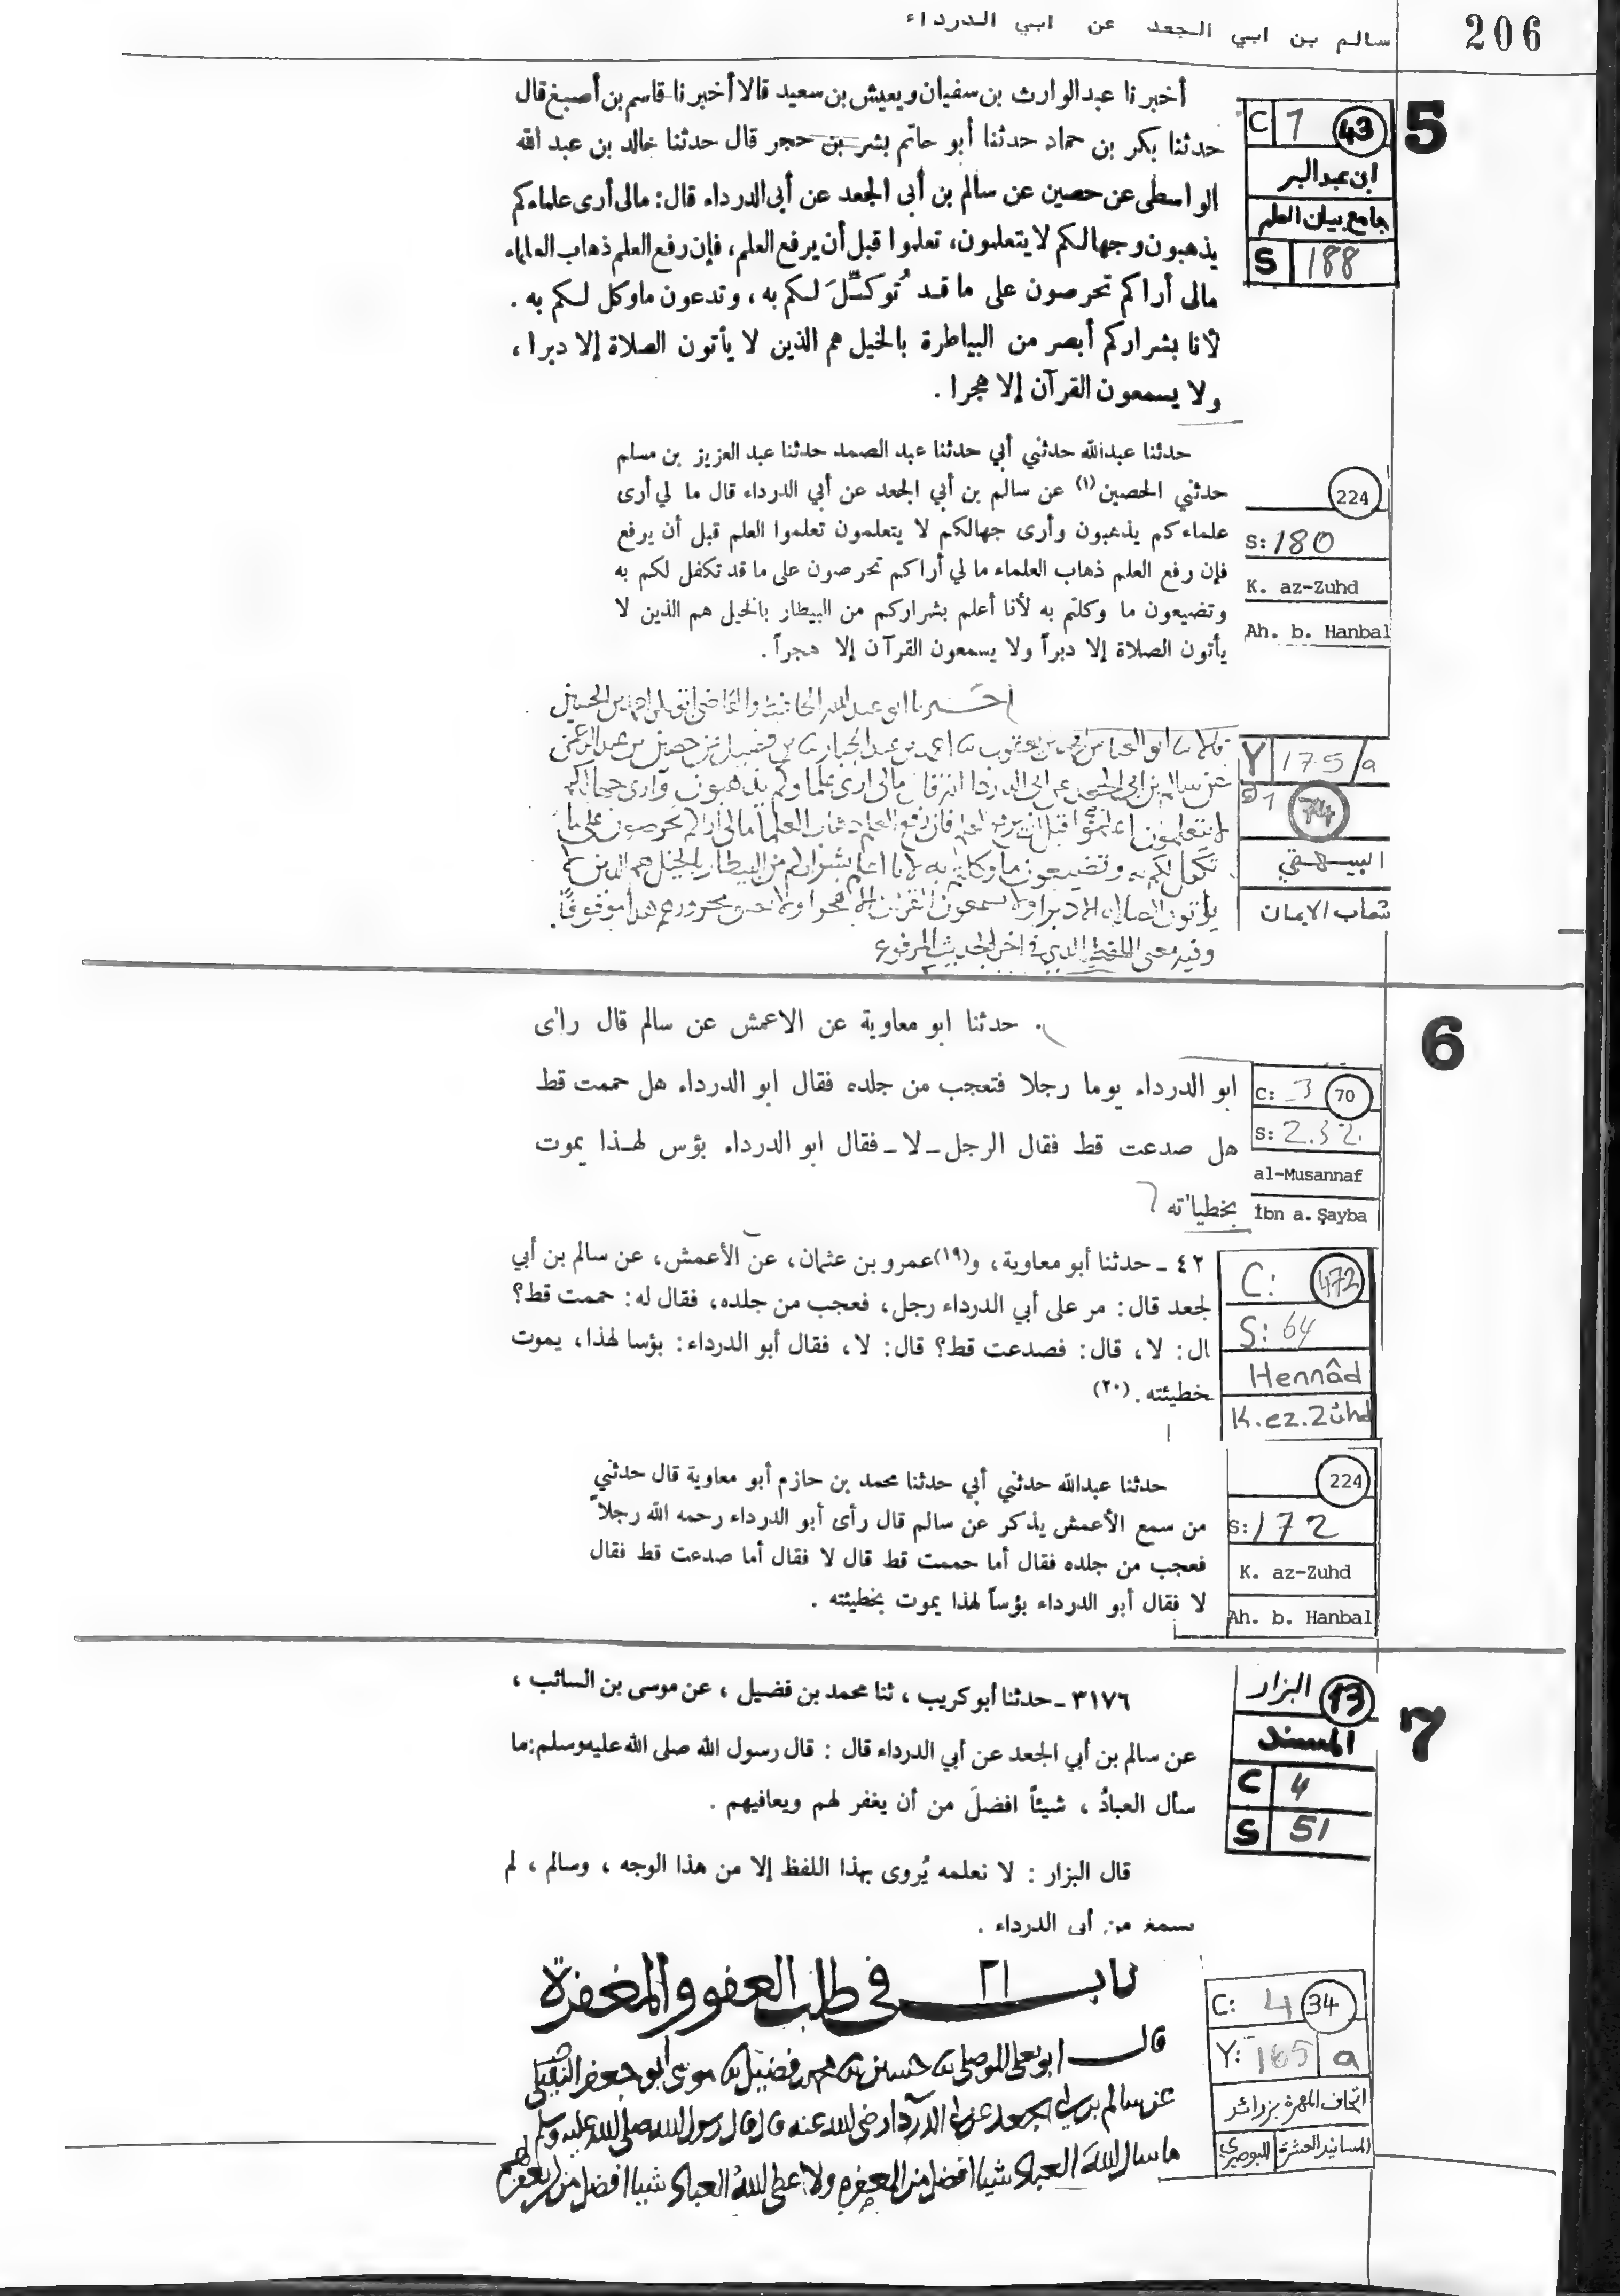 206
سالم بن ابي الجعد عن ابي الدرداء
5
C 1 43
ابن عبد البر
جامع بيان العلم
S 188
أخبرنا عبد الوارث بن سفيان ويعيش بن سعيد قالا أخبرنا قاسم بن أصبغ قال
حدثنا بكر بن حماد حدثنا أبو حاتم بشر بن حجر قال حدثنا خالد بن عبد الله
الواسطى عن حصين عن سالم بن أبى الجعد عن أبى الدرداء قال: مالى أرى علماءكم
يذهبون وجهالكم لا يتعلمون، تعلموا قبل أن يرفع العلم، فإن رفع العلم ذهاب العلماء
مالى أراكم تحرصون على ما قد تُوكِّلَ لكم به، وتدعون ماوكل لكم به.
لأنا بشراركم أبصر من البياطرة بالخيل هم الذين لا يأتون الصلاة إلا دبرا،
ولا يسمعون القرآن إلا هجرا.
224
S: 180
K. az-Zuhd
Ah. b. Hanbal
حدثنا عبدالله حدثني أبي حدثنا عبد الصمد حدثنا عبد العزيز بن مسلم
حدثني الحصين (١) عن سالم بن أبي الجعد عن أبي الدرداء قال ما لي أرى
علماءكم يذهبون وأرى جهالكم لا يتعلمون تعلموا العلم قبل أن يرفع
فإن رفع العلم ذهاب العلماء ما لي أراكم تحرصون على ما قد تكفل لكم به
وتضيعون ما وكلتم به لأنا أعلم بشراركم من البيطار بالخيل هم الذين لا
يأتون الصلاة إلا دبراً ولا يسمعون القرآن إلا هجراً.
Y 175/a
74
البيهقي
شعاب الايمان
اخبرنا ابو عبد الله الحافظ والقاضي
ابو العباس بن يعقوب بن عبد الجبار فضيل عن حصين بن عبد الرحمن
عن سالم بن ابي الجعد عن ابي الدرداء انه قال مالي ارى علماءكم يذهبون وارى جهالكم
لا يتعلمون فان رفع العلم ذهاب العلماء مالي اراكم تحرصون على ما
تكفل لكم به وتضيعون ما وكلتم به لانا اعلم بشراركم من البيطار بالخيل هم الذين لا
ياتون الصلاة الا دبرا ولا يسمعون القران الا هجرا ولا هذا موقوفا
وفيه معنى اللفظ الذي في اخر الحديث المرفوع
6
C: 3 70
S: 232
al-Musannaf
İbn a. Şayba
. حدثنا ابو معاوية عن الاعمش عن سالم قال راى
ابو الدرداء يوما رجلا فتعجب من جلده فقال ابو الدرداء هل حممت قط
هل صدعت قط فقال الرجل ـ لا ـ فقال ابو الدرداء بؤس لهذا يموت
بخطياته
C: 472
S: 64
Hennâd
K.ez.Zühd
٤٢ ـ حدثنا أبو معاوية، و(١٩)عمرو بن عثمان، عن الأعمش، عن سالم بن أبي
لجعد قال: مر على أبي الدرداء رجل، فعجب من جلده، فقال له: حممت قط؟
ال: لا، قال: فصدعت قط؟ قال: لا، فقال أبو الدرداء: بؤسا لهذا، يموت
خطيئته. (٢٠)
224
S: 172
K. az-Zuhd
Ah. b. Hanbal
حدثنا عبدالله حدثني أبي حدثنا محمد بن حازم أبو معاوية قال حدثني
من سمع الأعمش يذكر عن سالم قال رأى أبو الدرداء رحمه الله رجلاً
فعجب من جلده فقال أما حممت قط قال لا فقال أما صدعت قط فقال
لا فقال أبو الدرداء بؤساً لهذا يموت بخطيئته.
7
البزار
المسند
C 4
S 51
٣١٧٦ ـ حدثنا أبو كريب، ثنا محمد بن فضيل، عن موسى بن السائب،
عن سالم بن أبي الجعد عن أبي الدرداء قال: قال رسول الله صلى الله عليه وسلم: ما
سأل العبادُ، شيئاً افضلَ من أن يغفر لهم ويعافيهم.
قال البزار: لا نعلمه يُروى بهذا اللفظ إلا من هذا الوجه، وسالم، لم
يسمع من أبي الدرداء.
C: 4 34
Y: 165 a
اتحاف المهرة بزوائد
المسانيد العشرة للبوصيري
باب ٢١ في طلب العفو والمغفرة
قال ابو يعلى الموصلي حسين محمد فضيل موسى ابو جعفر
عن سالم بن ابي الجعد عن ابي الدرداء رضى الله عنه قال قال رسول الله صلى الله عليه وسلم
ما سال اللهَ العبادُ شيئا افضل من المغفرة ولا اعطى اللهُ العبادَ شيئا افضل من ان يغفر لهم